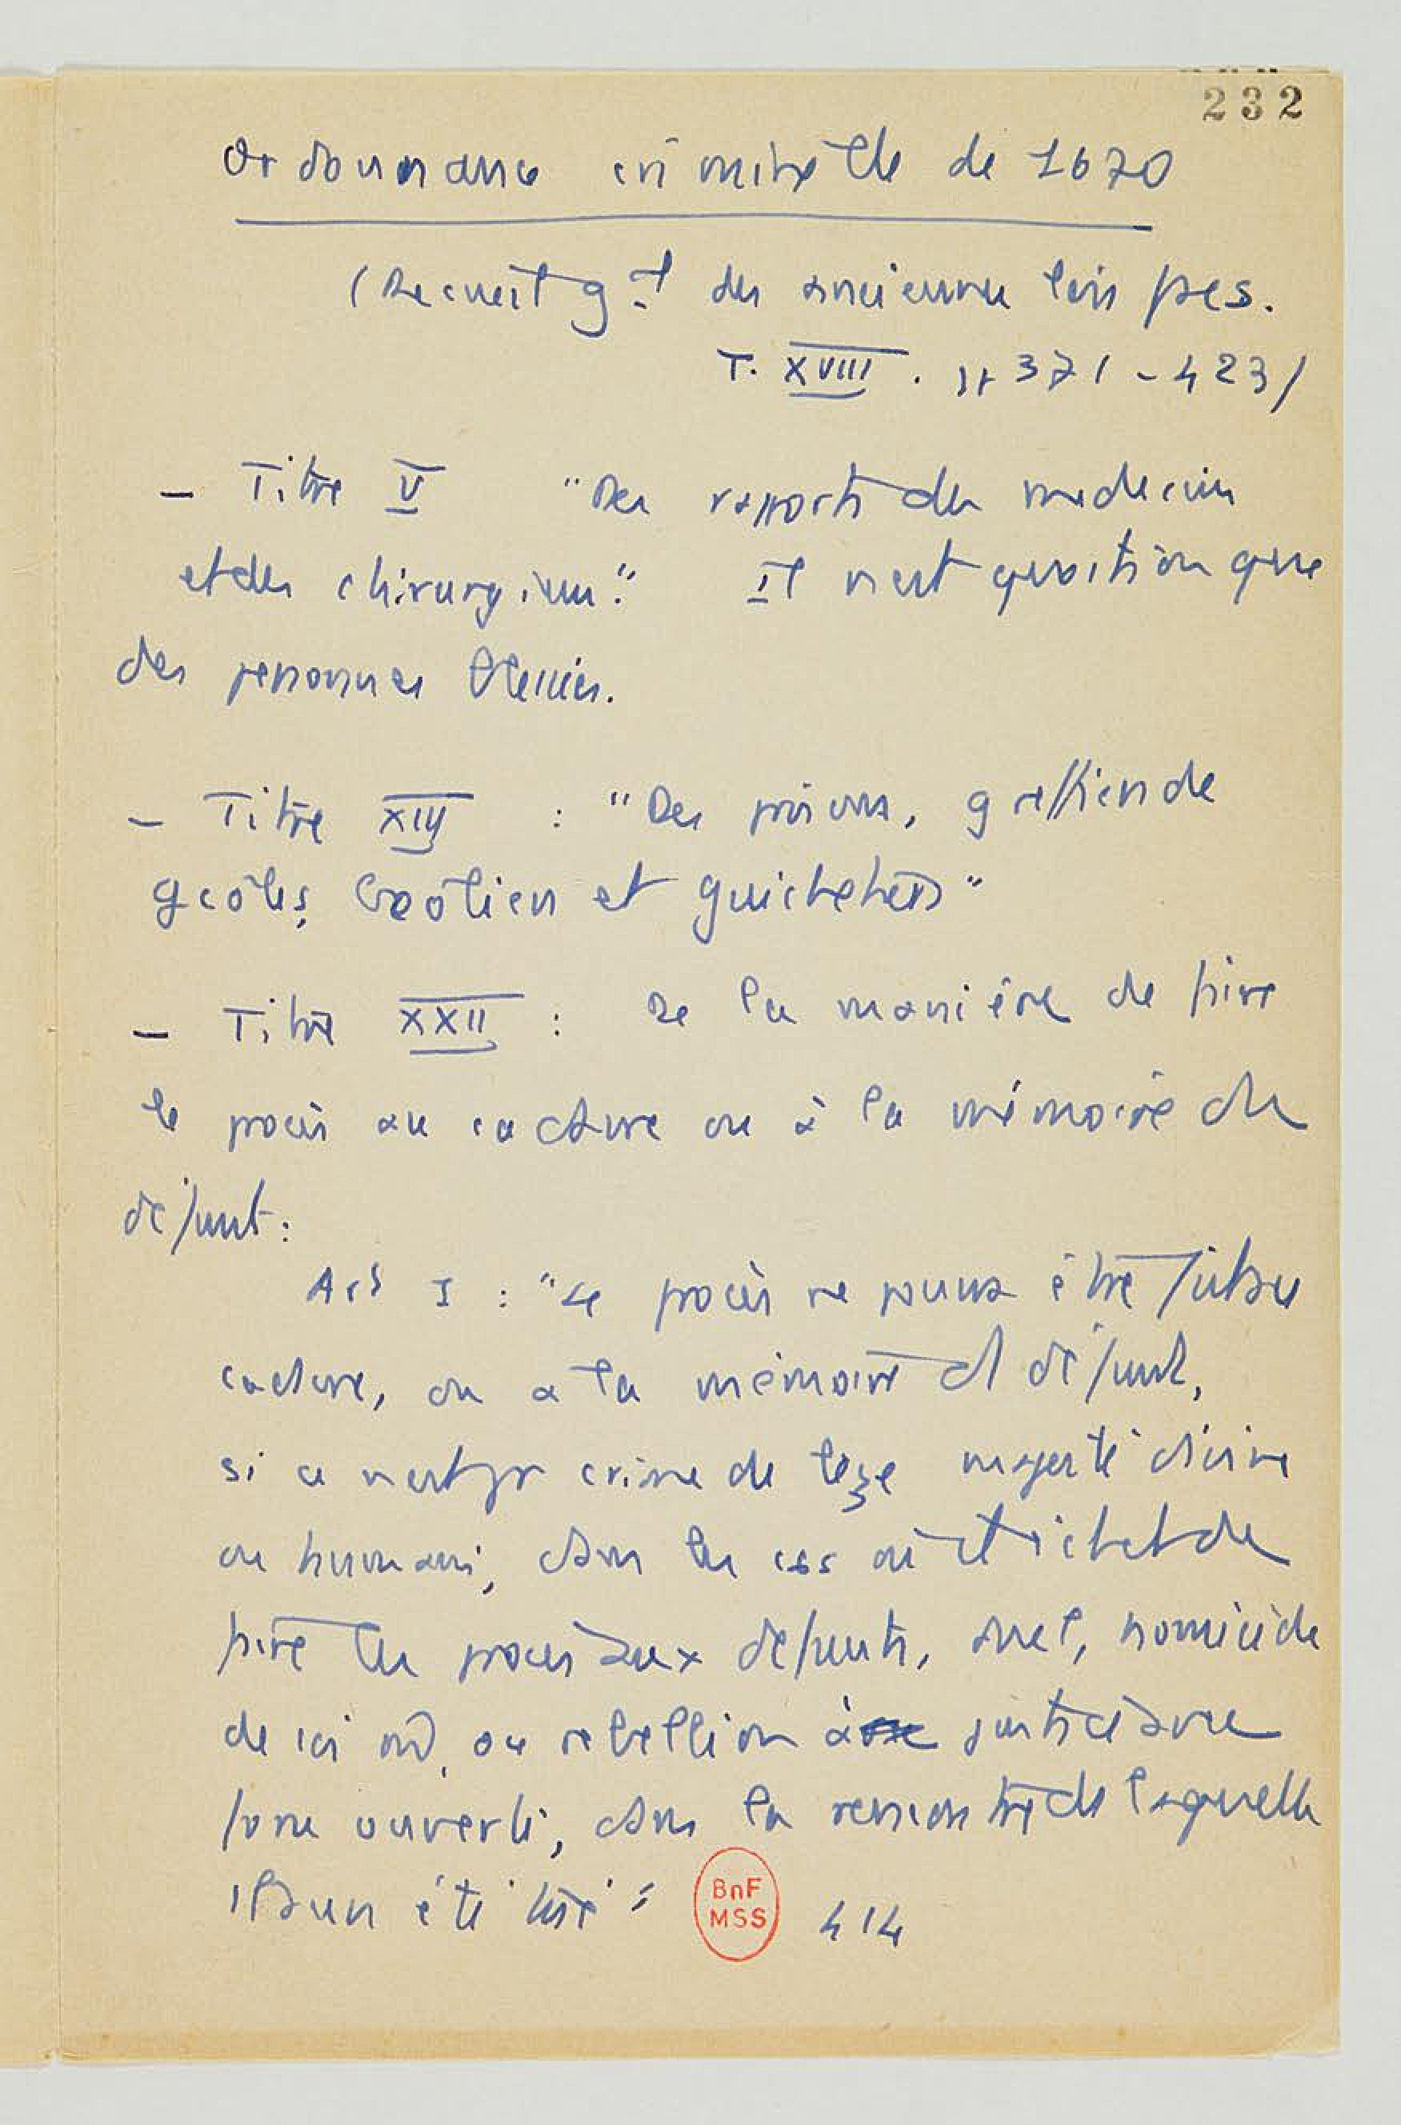 232
Ordonnance criminelle de 1670
(Recueil gal des anciennes lois fses.
T. XVIII. pp 371-423)
- Titre V "Des rapports des medecins
et des chirurgiens". Il n'est question que
des personnes blessées.
- Titre XIIJ : "Des prisons, greffiers de
geôles, Geôliers et guichetiers"
- Titre XXII : De la manière de faire
le procès au cadavre ou à la mémoire du
défunt :
Art I : "Le procès ne pourra être fait au
cadavre, ou a la mémoire d'1 défunt,
si ce n'est pr crime de leze majesté divine
ou humaine, dans les cas où il échet de
faire les procès aux défunts, duel, homicide
de soi md, ou rebellion à justice avec
force ouverte, dans la rencontre de laquelle
il aura été tué" 414
BnF
MSS